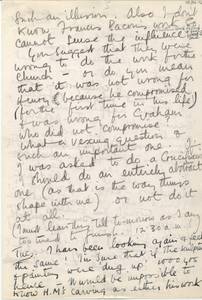 Such an illusion. Also I don't
know Francis Bacon's work so
cannot sense the influence.
You suggest that they were
wrong to do the work for the
Church – or do you mean
that it was not wrong for
Henry (because he compromised
for the first time in his life)
& was wrong for Graham
who did not compromise.
What a vexing question &
such an important one. If
I was asked to do a Crucifixion
I should do an entirely abstract
one (as that is the way things
shape with me) or not do it
at all.
(I must leave this till tomorrow as I am
too tired to finish. 12.30 a.m.)
Tues. I have been looking again & feel
the same! I'm sure that if the
painting were dug up 1000 yrs
hence it would be impossible to
know H.M's carving as either his work